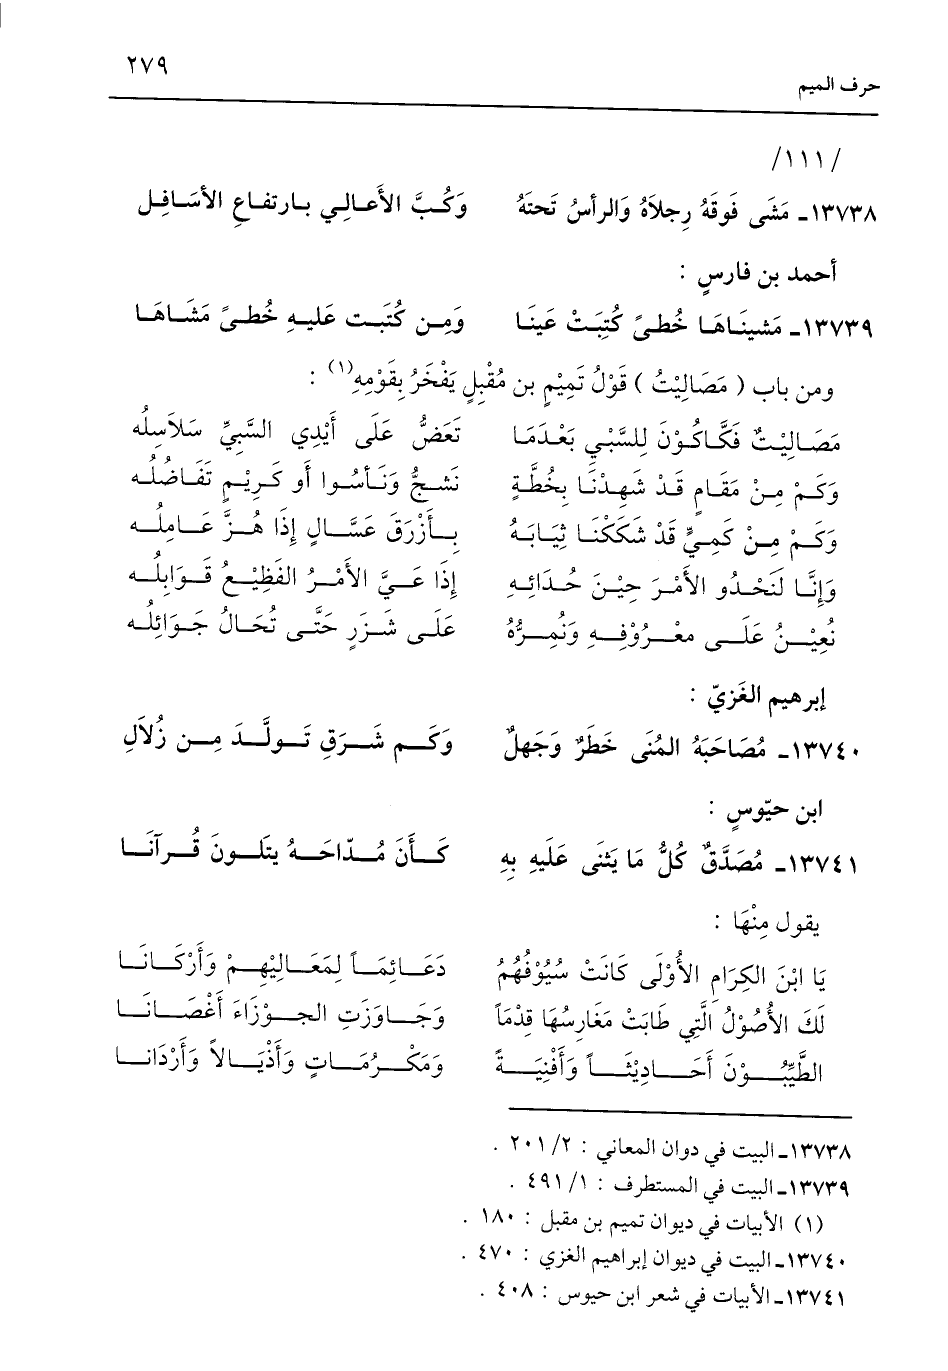 ٢٧٩
حرف الميم
/١١١/
١٣٧٣٨ـ مَشَى فَوقَهُ رِجلاَهُ وَالرأسُ تَحتَهُ وَكُبَّ الأَعالِي بارتفاعِ الأسَافِل
أحمد بن فارسٍ :
١٣٧٣٩ـ مَشينَاهَا خُطىً كُتِبَتْ عَينَا وَمِن كُتَبت عَليهِ خُطىً مَشَاهَا
ومن باب ( مَصَالِيْتُ ) قَوْلُ تَمِيْمِ بن مُقْبِلٍ يَفْخَرُ بِقَوْمِهِ(١) :
مَصَالِيْتٌ فَكَّاكُوْنَ لِلسَّبْيِ بَعْدَمَا تَعَضُّ عَلَى أَيْدِي السَّبِيِّ سَلاَسِلُه
وَكَمْ مِنْ مَقَامِ قَدْ شَهِدْنَا بِخُطَّةٍ نَشجُّ وَنَأسُوا أو كَرِيْمٍ تفَاضُلُه
وَكَمْ مِن كَمِيٍّ قَدْ شَكَكْنَا ثِيَابَهُ بِأَزْرَقَ عَسَّالٍ إِذَا هُزَّ عَامِلُه
وَإِنَّا لَنَحْدُو الأمْرَ حِيْنَ حُدَائِهِ إِذَا عَيَّ الأَمْرُ الفَظِيْعُ قَوابِلُه
نُعِيْنُ عَلَى معْرُوْفِهِ وَنُمِرُّهُ عَلَى شَزَرٍ حَتَّى تُحَالُ جَوَائِلُه
إبرهيم الغَزيّ :
١٣٧٤٠ـ مُصَاحَبَةُ المُنَى خَطَرٌ وَجَهلٌ وَكَم شَرَقِ تَولَّدَ مِن زُلاَلِ
ابن حيّوسٍ :
١٣٧٤١ـ مُصَدَّقٌ كُلُّ مَا يَثنَى عَلَيهِ بِهِ كَأَنَ مُدّاحَهُ يتلونَ قُرآنَا
يقول مِنْهَا :
يَا ابْنَ الكِرَامِ الأُوْلَى كَانَتْ سُيُوْفُهُمُ دَعَائِمَاً لِمَعَالِيْهِمْ وَأَرْكَانَا
لَكَ الأُصُوْلُ الَّتِي طَابَتْ مَغَارِسُهَا قِدْمَاً وَجَاوَزَتِ الجوْزَاءَ أَغْصَانَا
الطَّيِّبُوْنَ أَحَادِيْثَاً وَأَفْنِيَةً وَمَكْرُمَاتٍ وَأَذْيَالاً وَأَرْدَانا
١٣٧٣٨ـ البيت في دوان المعاني : ٢/ ٢٠١ .
١٣٧٣٩ـ البيت في المستطرف : ١/ ٤٩١ .
(١) الأبيات في ديوان تميم بن مقبل : ١٨٠ .
١٣٧٤٠ـ البيت في ديوان إبراهيم الغزي : ٤٧٠ .
١٣٧٤١ـ الأبيات في شعر ابن حيوس : ٤٠٨ .